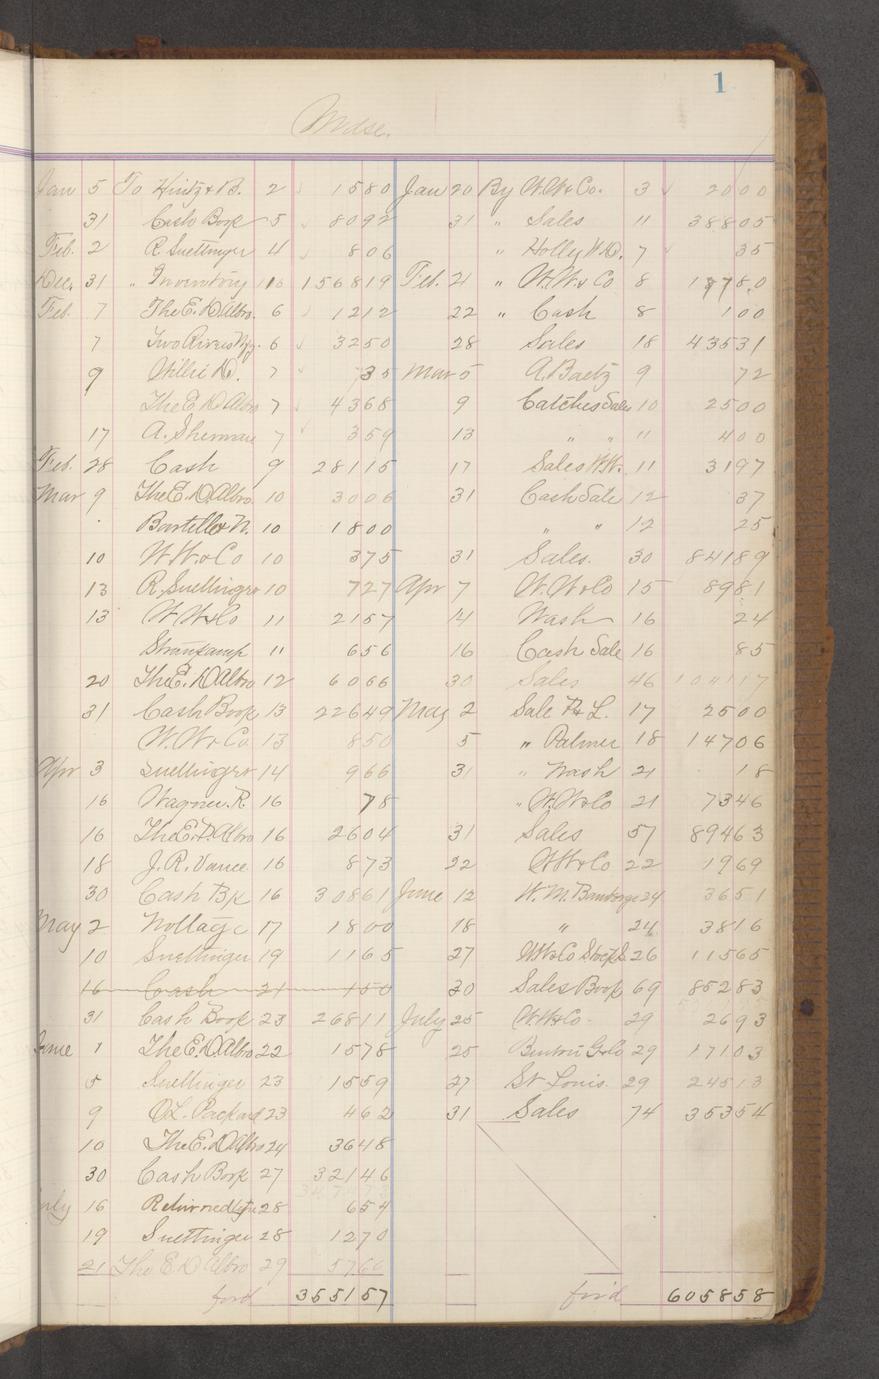 1
Mdse.
Jan 5 To Hintz & B. 2 1580 Jan 20 By W.W. & Co. 3 2000
31 Cash Book 5 8092 31 " Sales 11 38805
Feb. 2 R. Suettinger 4 806 " Holly W.D. 7 35
Dec. 31 " Inventory 10 156819 Feb. 21 " W.W. & Co 8 17780
Feb. 7 The E. D. Albro. 6 1212 22 " Cash 8 100
7 Two Rivers Mfg. 6 3250 28 Sales 18 43531
9 Willie D. 7 35 Mar 5 A. Baetz 9 72
The E. D. Albro 7 4368 9 Catches Sale 10 2500
17 A. Sherman 7 359 13 " " 11 400
Feb. 28 Cash 9 28115 17 Sales W.W. 11 3197
Mar 9 The E. D. Albro 10 3006 31 Cash Sale 12 37
Bartells & N. 10 1800 " " 12 25
10 W.W. & Co 10 375 31 Sales. 30 84189
13 R. Suettinger 10 727 Apr 7 W.W. & Co 15 8981
13 W.W. & Co 11 2157 14 Wash 16 24
11 656 16 Cash Sale 16 85
20 The E. D. Albro 12 6066 30 Sales 46
31 Cash Book 13 22649 May 2 Sale P. & L. 17 2500
W.W. & Co 13 850 5 " Palmer 18 14706
Apr 3 Suettinger 14 966 31 " Wash 21 18
16 Wagner. R. 16 78 " W.W. & Co 21 7346
16 The E. D. Albro 16 2604 31 Sales 57 89463
18 J. R. Vance 16 873 22 W.W. & Co 22 1969
30 Cash Bk 16 30861 June 12 W. M. 24 3651
May 2 Nollage 17 1800 18 " 24 3816
10 Suettinger 19 1165 27 W.W. & Co 26 11565
16 Cash 21 150 30 Sales Book 69 85283
31 Cash Book 23 26811 July 25 W.W. & Co. 29 2693
June 1 The E. D. Albro 22 1578 25 29 17103
5 Suettinger 23 1559 27 St Louis. 29 24513
9 O. L. Packard 23 462 31 Sales 74 35354
10 The E. D. Albro 24 3648
30 Cash Book 27 32146
July 16 Returned 28 654
19 Suettinger 28 1270
21 The E. D. Albro 29 5766
ford 355157 for'd 605858